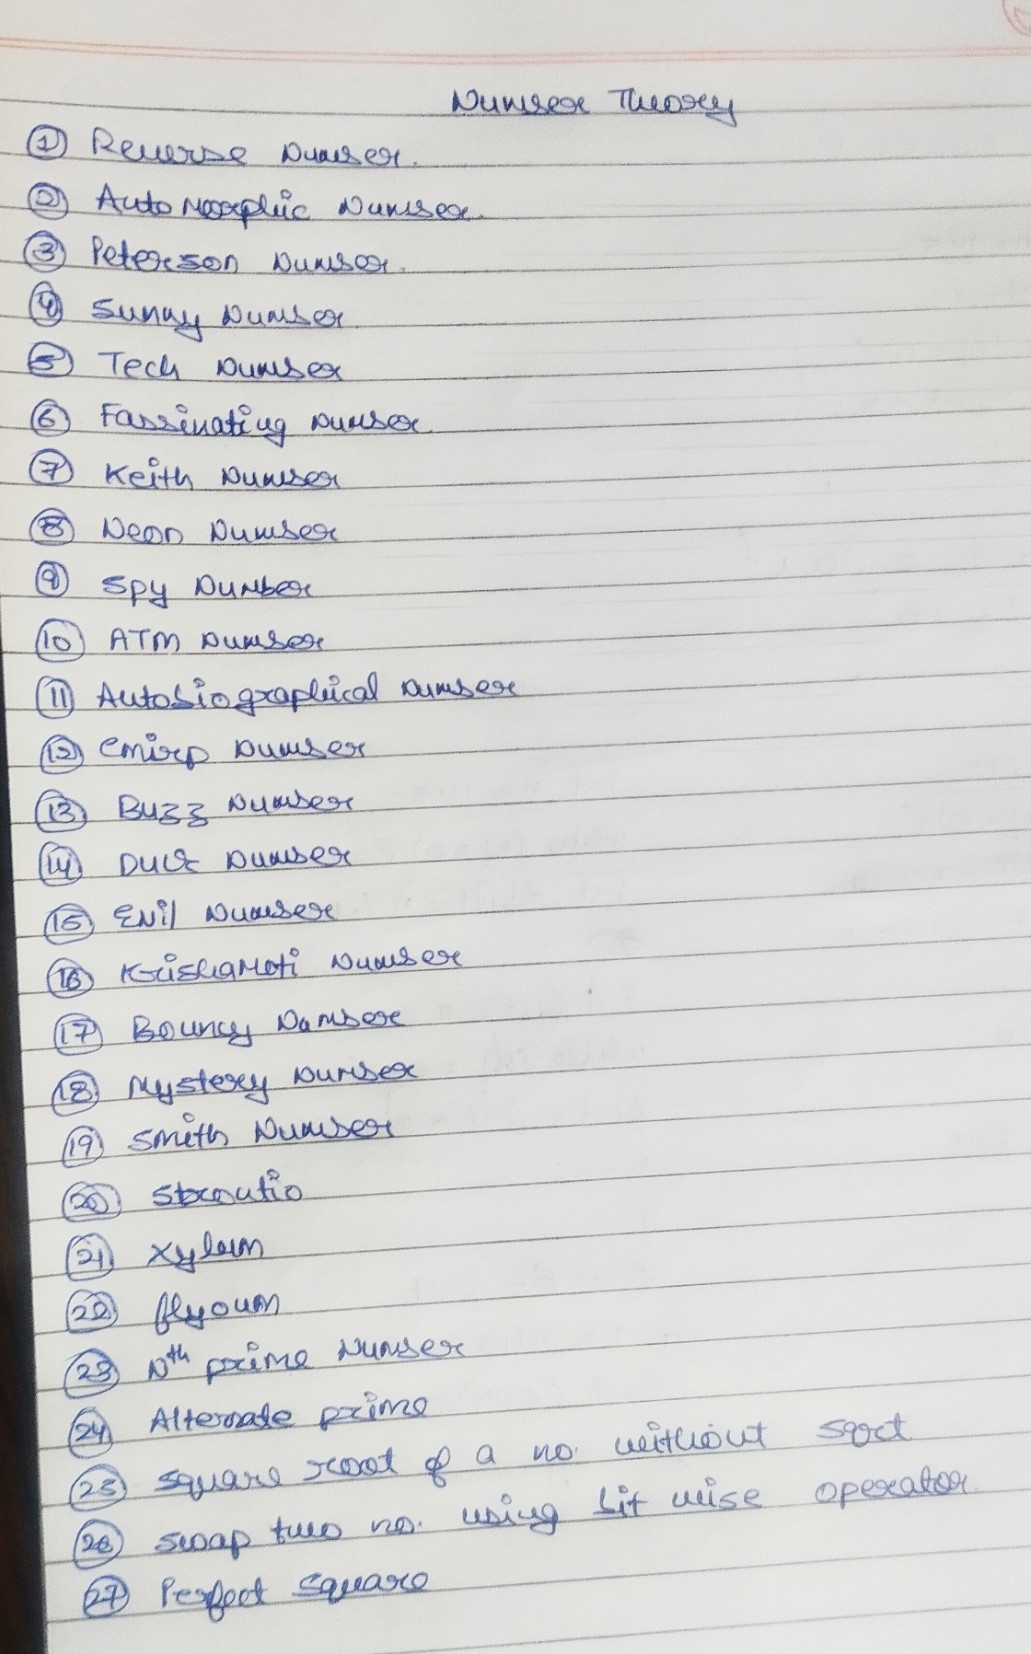 Number Theory
① Reverse Number.
② Automorphic Number.
③ Peterson Number.
④ Sunny Number.
⑤ Tech Number
⑥ Fassinating Number.
⑦ Keith Number
⑧ Neon Number
⑨ Spy Number
⑩ ATM Number
⑪ Autobiographical Number
⑫ Emirp Number
⑬ Buzz Number
⑭ Duck Number
⑮ Evil Number
⑯ Krishamoti Number
⑰ Bouncy Number
⑱ Mystery Number
⑲ Smith Number
⑳ Strontio
㉑ Xylem
㉒ flyoum
㉓ Nth prime Number
㉔ Alternate prime
㉕ Square root of a no. without sqrt
㉖ Swap two no. using bit wise operator
㉗ Perfect Square